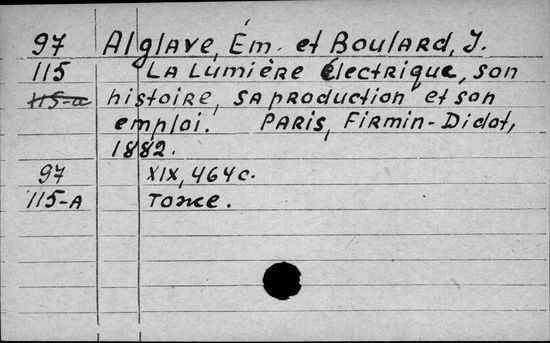 97 Alglave, Ém. et Boulard, J.
115 La Lumière électrique, son
115-a histoire, sa production et son
emploi. Paris, Firmin-Didot,
1882.
97 XIX, 464 с.
115-A Тоже.